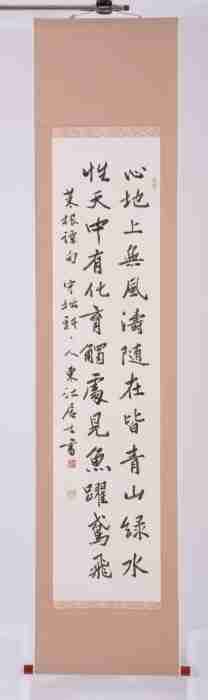 心地上無風濤随在皆青山緑水
性天中有化育觸處見魚躍鳶飛
菜根譚句 守拙 人東江居士書